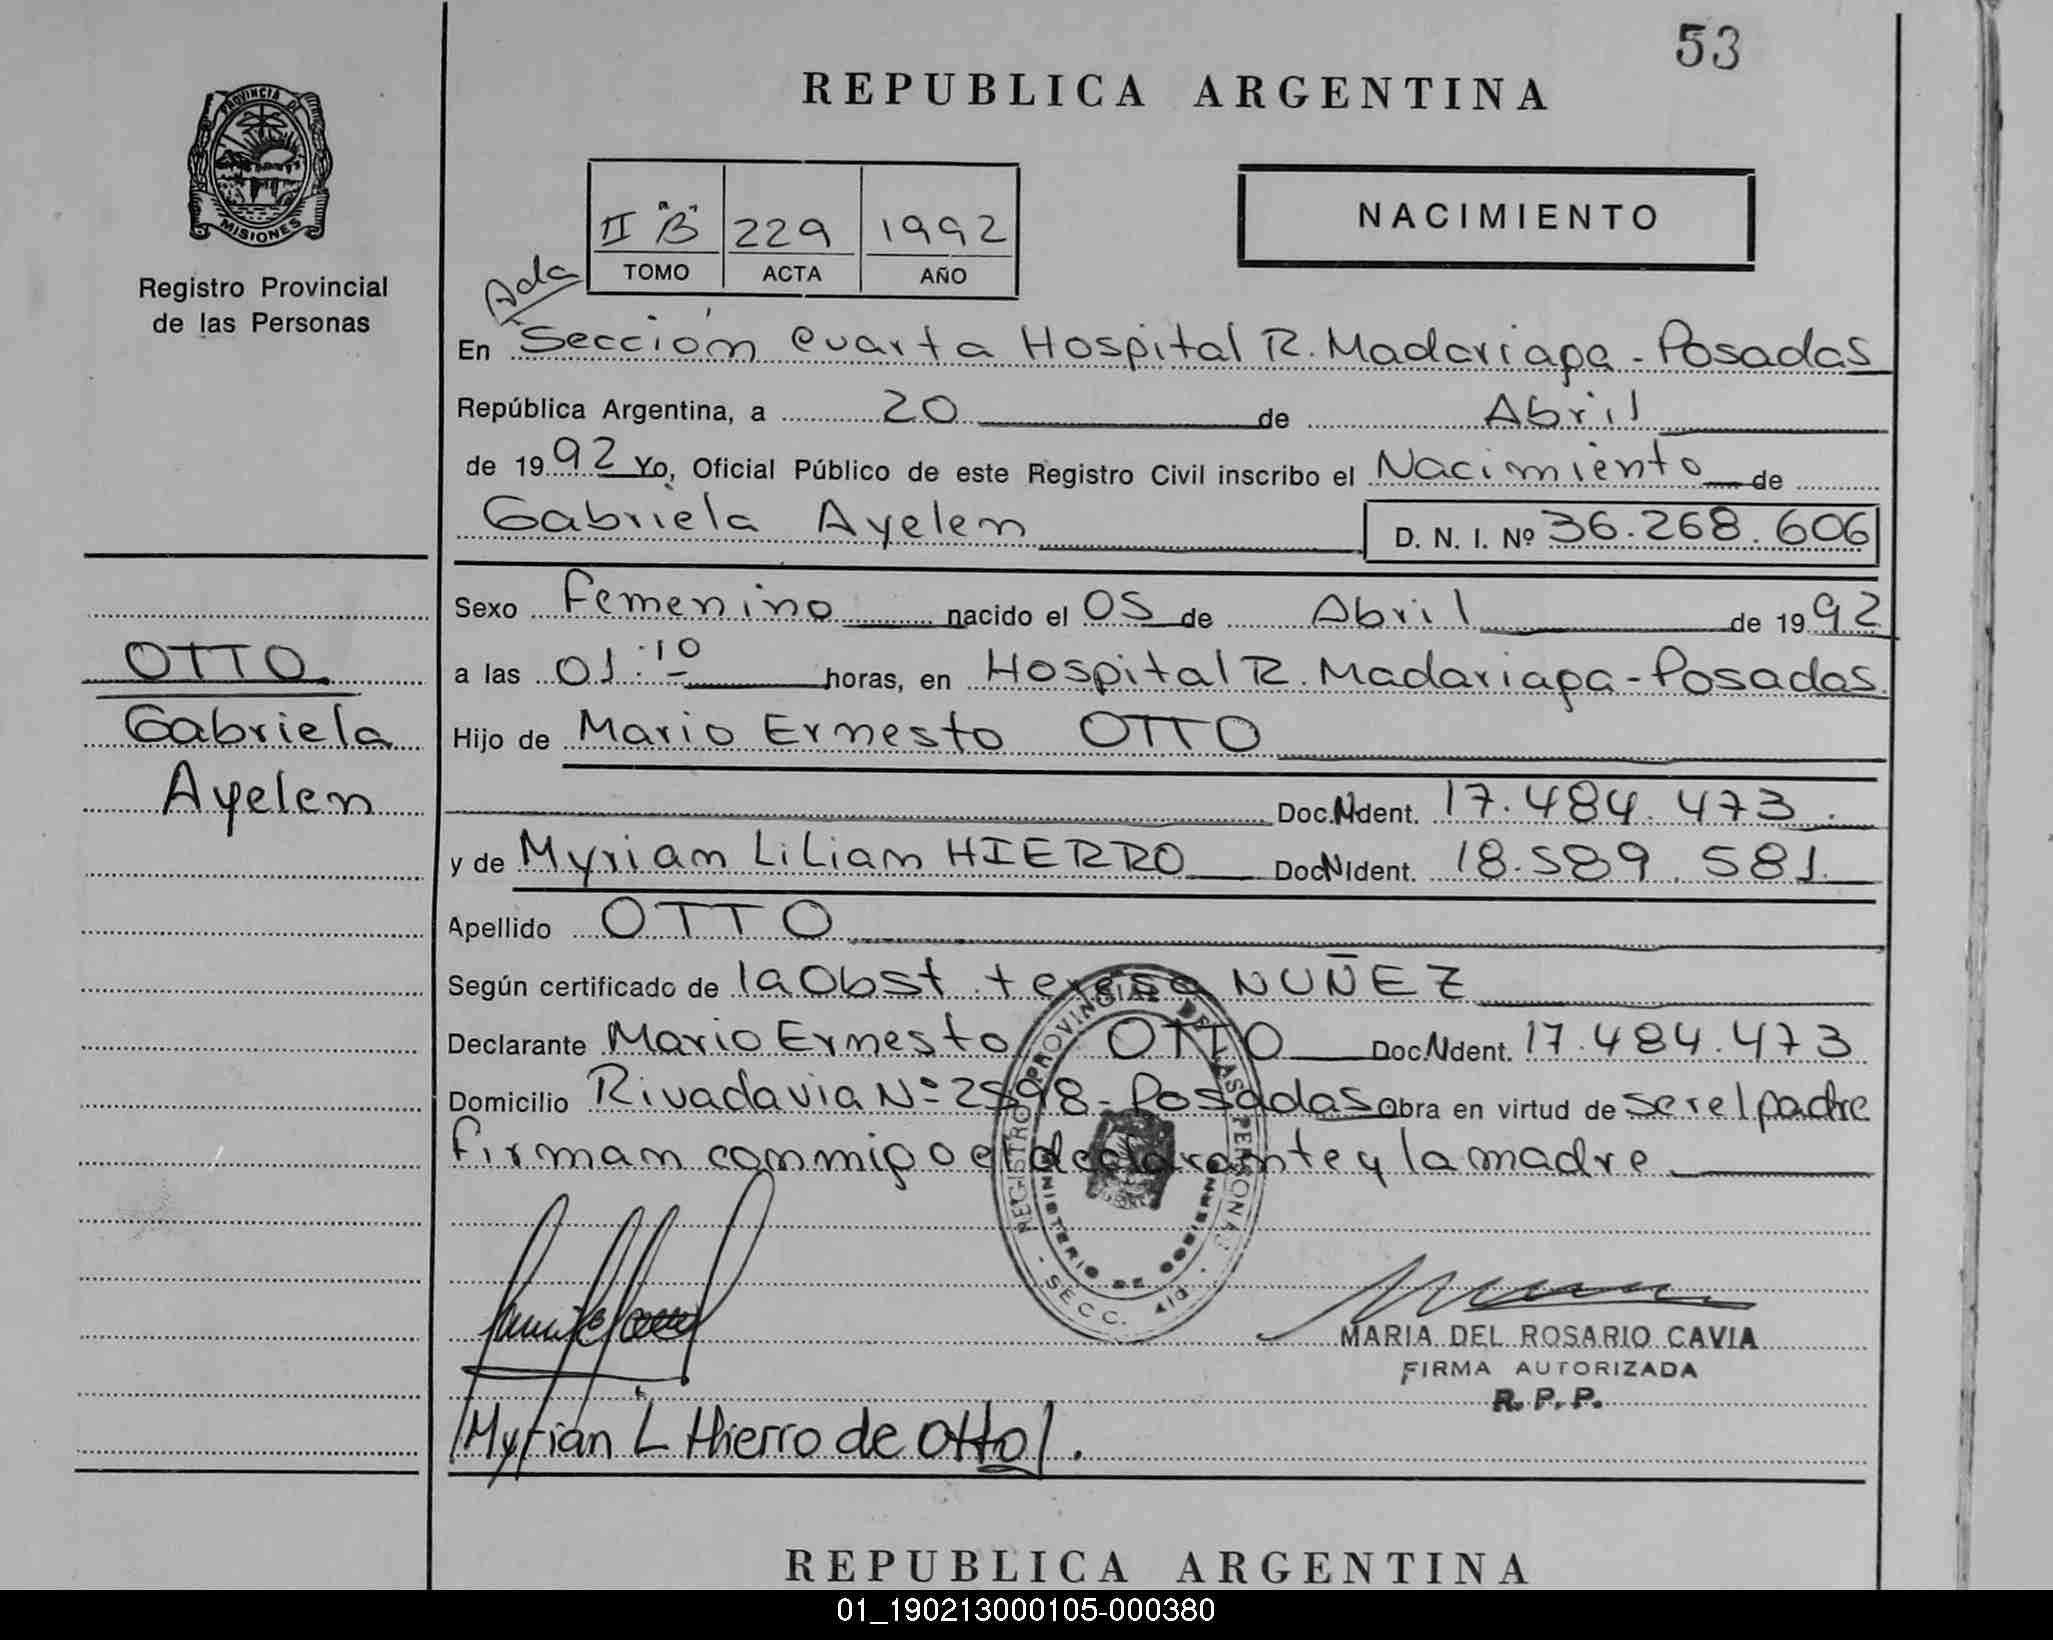 53
REPUBLICA ARGENTINA
PROVINCIA DE
MISIONES
Registro Provincial
de las Personas
NACIMIENTO
II "B" 229 1992
TOMO ACTA AÑO
Ada
En Sección Cuarta Hospital R. Madariaga - Posadas
República Argentina, a 20 de Abril
de 1992 Yo, Oficial Público de este Registro Civil inscribo el Nacimiento de
Gabriela Ayelen D. N. I. Nº 36.268.606
Sexo Femenino nacido el 05 de Abril de 1992
OTTO
a las 01:10 horas, en Hospital R. Madariaga - Posadas.
Gabriela
Hijo de Mario Ernesto OTTO
Ayelen
Doc. N Ident. 17.484.473.
y de Myrian Lilian HIERRO Doc N Ident. 18.589.581.
Apellido OTTO
Según certificado de la Obst teresa NUÑEZ
Declarante Mario Ernesto OTTO Doc. N Ident. 17.484.473
Domicilio Rivadavia Nº 2598 - Posadas obra en virtud de ser el padre
firman conmigo el declarante y la madre
REGISTRO PROVINCIAL DE LAS PERSONAS
MINISTERIO DE GOBIERNO
SECC. 4ta.
MARIA DEL ROSARIO CAVIA
FIRMA AUTORIZADA
R. P. P.
Myrian L Hierro de Otto.
REPUBLICA ARGENTINA
01_190213000105-000380